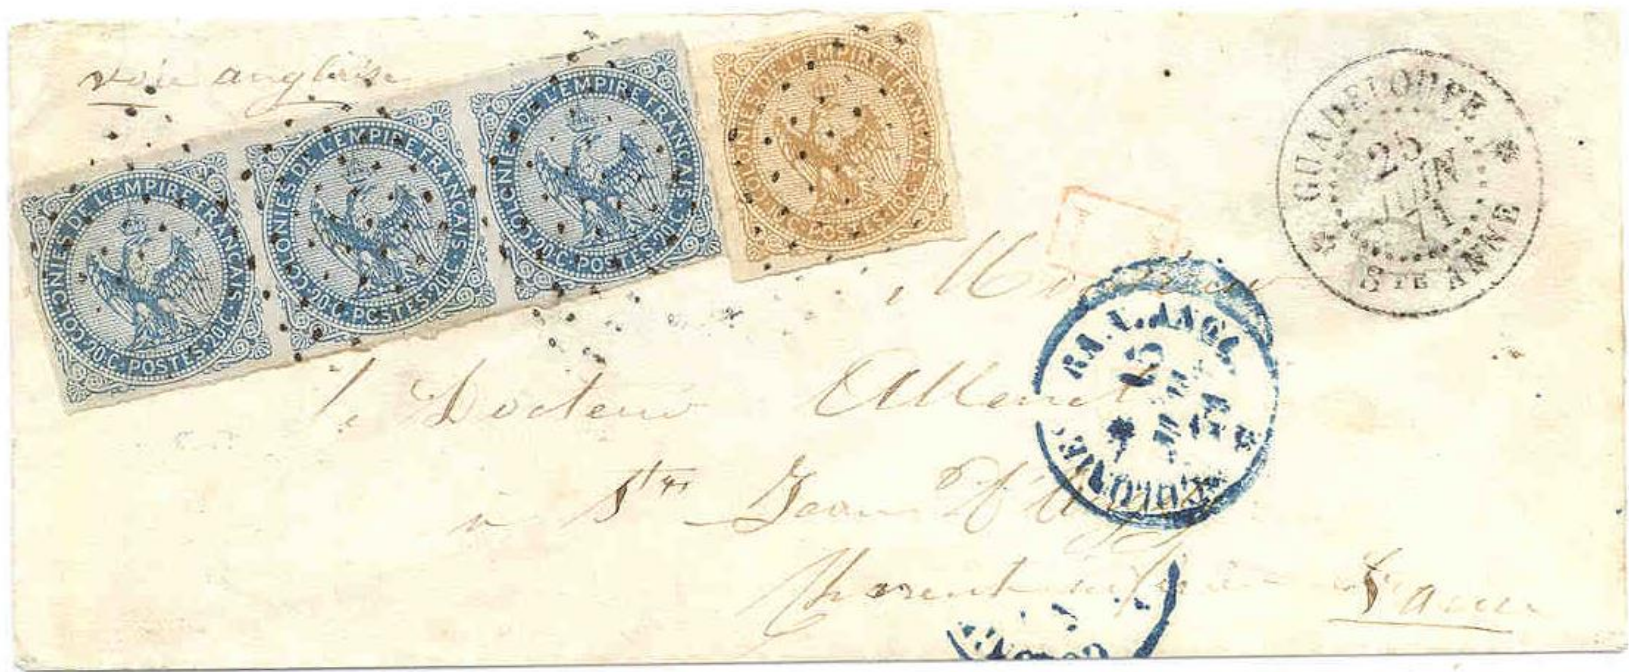 voie anglaise
COLONIES DE L'EMPIRE FRANÇAIS
20C. POSTES. 20C.
COLONIES DE L'EMPIRE FRANÇAIS
20C. POSTES. 20C.
COLONIES DE L'EMPIRE FRANÇAIS
20C. POSTES. 20C.
COLONIES DE L'EMPIRE FRANÇAIS
10C. POSTES. 10C.
GUADELOUPE
JUIN
71
STE ANNE
Monsieur
le Docteur
ANGL.
à St Jean d'
Charente inférieure France